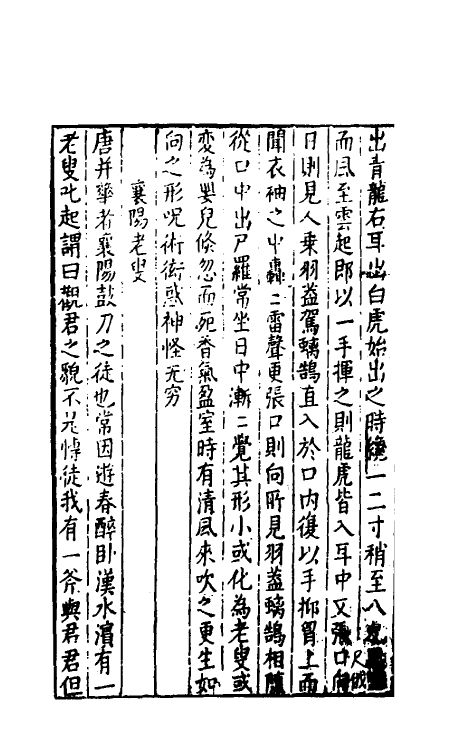 出青龍右耳出白虎始出之時纔一二寸稍至八九尺俄
而風至雲起即以一手揮之則龍虎皆入耳中又張口向
日則見人乗羽蓋駕螭鵠直入於口内復以手抑胷上而
聞衣袖之中轟二雷聲更張口則向所見羽蓋螭鵠相隨
從口中出尸羅常坐日中漸二覺其形小或化為老叟或
變為嬰兒倏忽而死香氣盈室時有清風來吹之更生如
向之形呪術衒惑神怪无穷
襄陽老叟
唐并華者襄陽鼓刀之徒也常因遊春醉卧漢水濵有一
老叟叱起謂曰觀君之貌不是博徒我有一斧與君君但